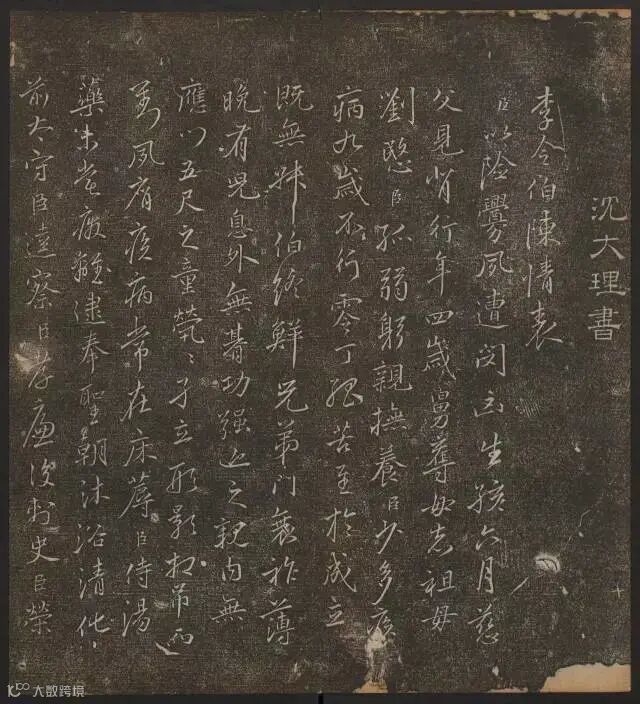 沈大理書
李令伯陳情表
臣以險釁夙遭閔凶生孩六月慈
父見背行年四歲舅奪母志祖母
劉愍臣孤弱躬親撫養臣少多疾
病九歲不行零丁孤苦至於成立
既無叔伯終鮮兄弟門衰祚薄
晚有兒息外無朞功强近之親內無
應門五尺之童煢〻孑立形影相弔而
劉夙有疾病常在床蓐臣侍湯
藥未嘗廢離逮奉聖朝沐浴清化
前太守臣逵察臣孝廉後刺史臣榮
大数跨境